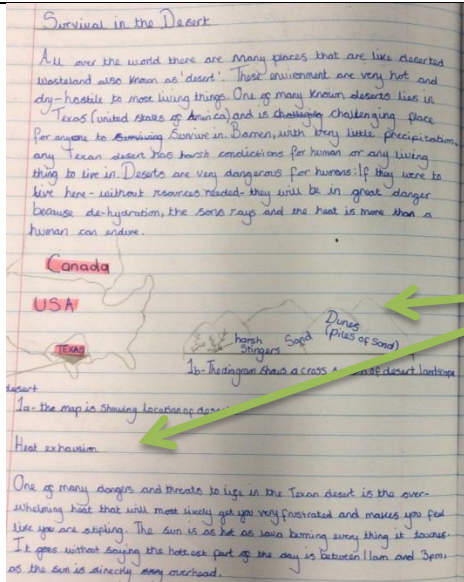 Survival in the Desert
All over the world there are many places that are like deserted
wasteland also known as 'desert'. These environment are very hot and
dry-hostile to most living things. One of many known deserts lies in
Texas (united states of America) and is challenging place
for anyone to Survive in. Barren, with very little precipitation,
any Texan desert has harsh condictions for human or any living
thing to live in. Deserts are very dangerous for humans: If they were to
live here - without resources needed - they will be in great danger
because de-hydration, the sons rays and the heat is more than a
human can endure.
Canada
USA
TEXAS
harsh
Stingers
Sand
Dunes
(piles of sand)
1b- The diagram shows a cross of desert landscape
desert
1a- the map is showing location of
Heat exhausion
One of many dangers and threats to life in the Texan desert is the over-
whelming heat that will most likely get you very frustrated and makes you feel
like you are stifling. The sun is as hot as lava burning every thing it touches.
It goes without saying the hottest part of the day is between 11am and 3pm.
as the sun is directly overhead.